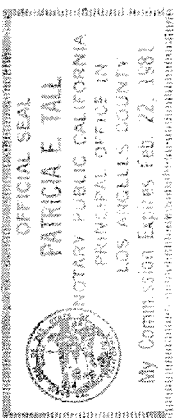 OFFICIAL SEAL
PATRICIA E. TALL
NOTARY PUBLIC CALIFORNIA
PRINCIPAL OFFICE IN
LOS ANGELES COUNTY
My Commission Expires Feb. 22, 1981